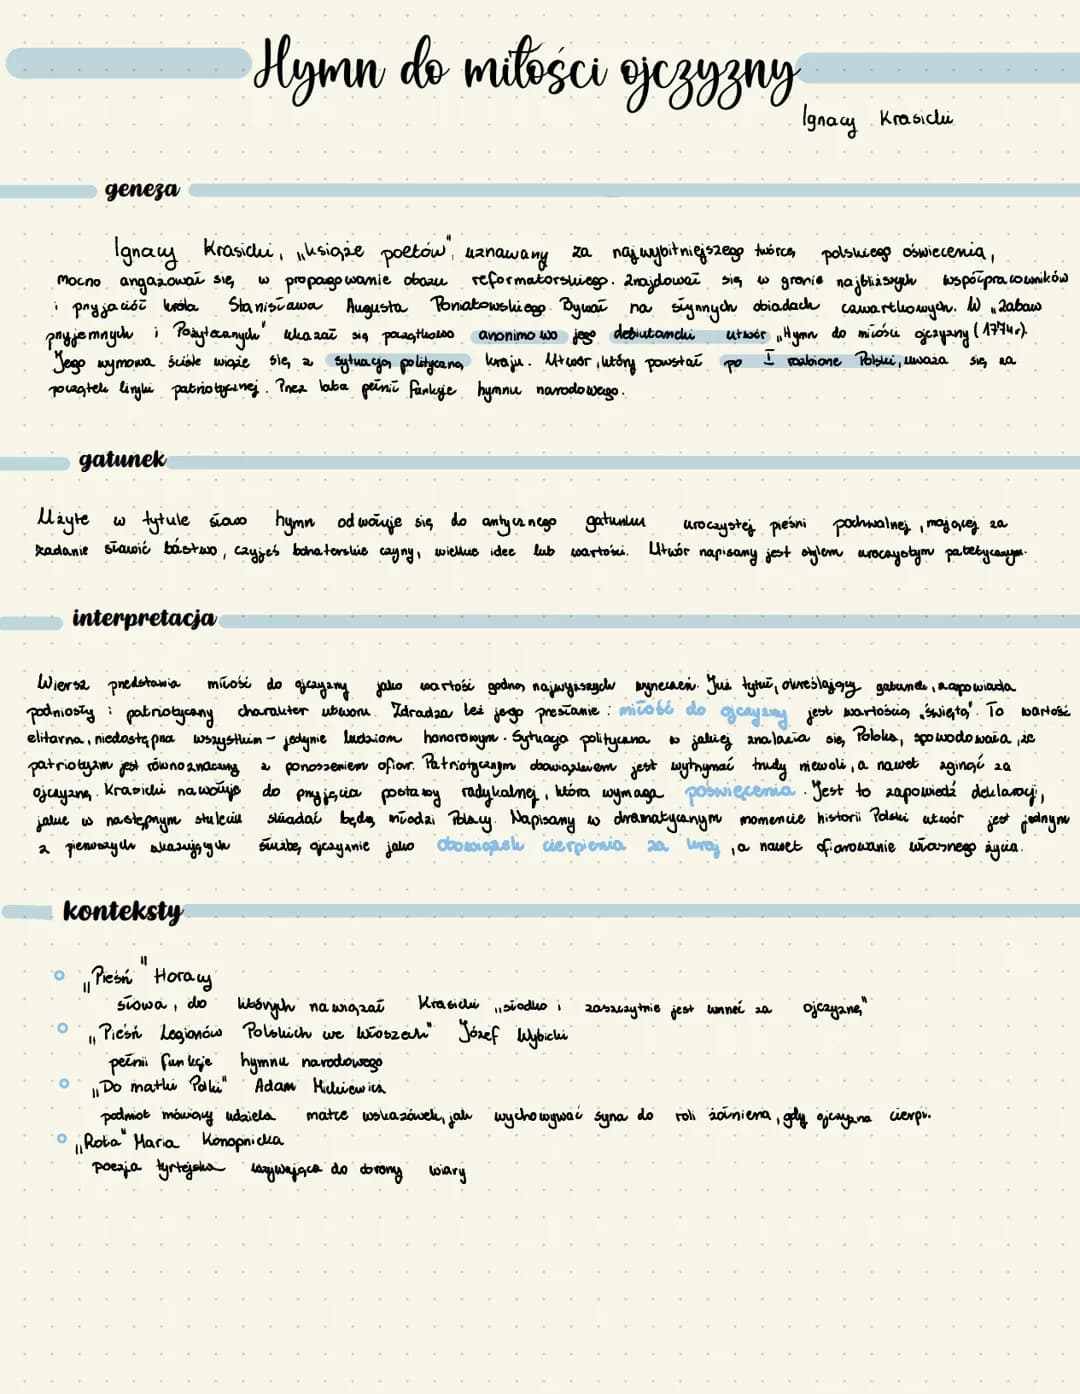 Hymn do miłości ojczyzny
Ignacy Krasicki
geneza
Ignacy Krasicki, „książe poetów", uznawany za najwybitniejszego twórcę polskiego oświecenia,
mocno angażował się, w propagowanie obozu reformatorskiego. Znajdował się w gronie najbliższych współpracowników
i przyjaciół króla Stanisława Augusta Poniatowskiego. Bywał na słynnych obiadach czwartkowych. W „Zabaw
przyjemnych i Pożytecznych" ukazał się początkowo anonimowo jego debiutancki utwór „Hymn do miłości ojczyzny (1774r).
Jego wymowa ściśle wiąże się, z sytuacją polityczną kraju. Utwór, który powstał po I rozbiorze Polski, uważa się za
początek liryki patriotycznej. Przez lata pełnił funkcje hymnu narodowego.
gatunek
Użyte w tytule słowo hymn odwołuje się do antycznego gatunku uroczystej pieśni pochwalnej, mającej za
zadanie sławić bóstwo, czyjeś bohaterskie czyny, wielkie idee lub wartości. Utwór napisany jest stylem uroczystym patetycznym.
interpretacja
Wiersz przedstawia miłość do ojczyzny jako wartość godną najwyższych wyrzeczeń. Już tytuł, określający gatunek, zapowiada
podniosły i patriotyczny charakter utworu. Zdradza też jego przesłanie: miłość do ojczyzny jest wartością „świętą". To wartość
elitarna, niedostępna wszystkim - jedynie ludziom honorowym. Sytuacja polityczna w jakiej znalazła się, Polska, spowodowała, że
patriotyzm jest równoznaczny z ponoszeniem ofiar. Patriotycznym obowiązkiem jest wytrzymać trudy niewoli, a nawet zginąć za
ojczyznę. Krasicki nawołuje do przyjęcia postawy radykalnej, która wymaga poświęcenia. Jest to zapowiedź deklaracji,
jakie w następnym stuleciu składać będą młodzi Polacy. Napisany w dramatycznym momencie historii Polski utwór jest jednym
z pierwszych ukazujących służbę ojczyźnie jako obowiązek cierpienia za kraj, a nawet ofiarowanie własnego życia.
konteksty
„Pieśń" Horacy
słowa, do których nawiązał Krasicki „słodko i zaszczytnie jest umrzeć za ojczyznę"
„Pieśń Legionów Polskich we Włoszech" Józef Wybicki
pełni funkcje hymnu narodowego
„Do matki Polki" Adam Mickiewicz
podmiot mówiący udziela matce wskazówek, jak wychowywać syna do roli żołnierza, gdy ojczyzna cierpi.
„Rota" Maria Konopnicka
poezja tyrtejska wzywająca do obrony wiary